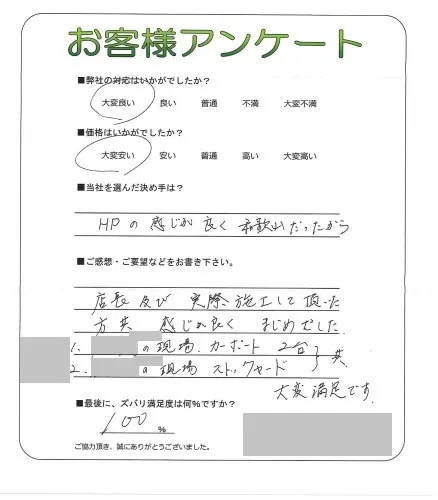 お客様アンケート
■弊社の対応はいかがでしたか?
大変良い 良い 普通 不満 大変不満
■価格はいかがでしたか?
大変安い 安い 普通 高い 大変高い
■当社を選んだ決め手は?
HPの感じが良く 和歌山だったから
■ご感想・ご要望などをお書き下さい。
店長及び 実際施工して頂いた
方共 感じが良く まじめでした。
1. の現場. カーポート 2台
2. の現場 ストックヤード } 共
大変満足です.
■最後に、ズバリ満足度は何%ですか?
100 %
ご協力頂き、誠にありがとうございました。